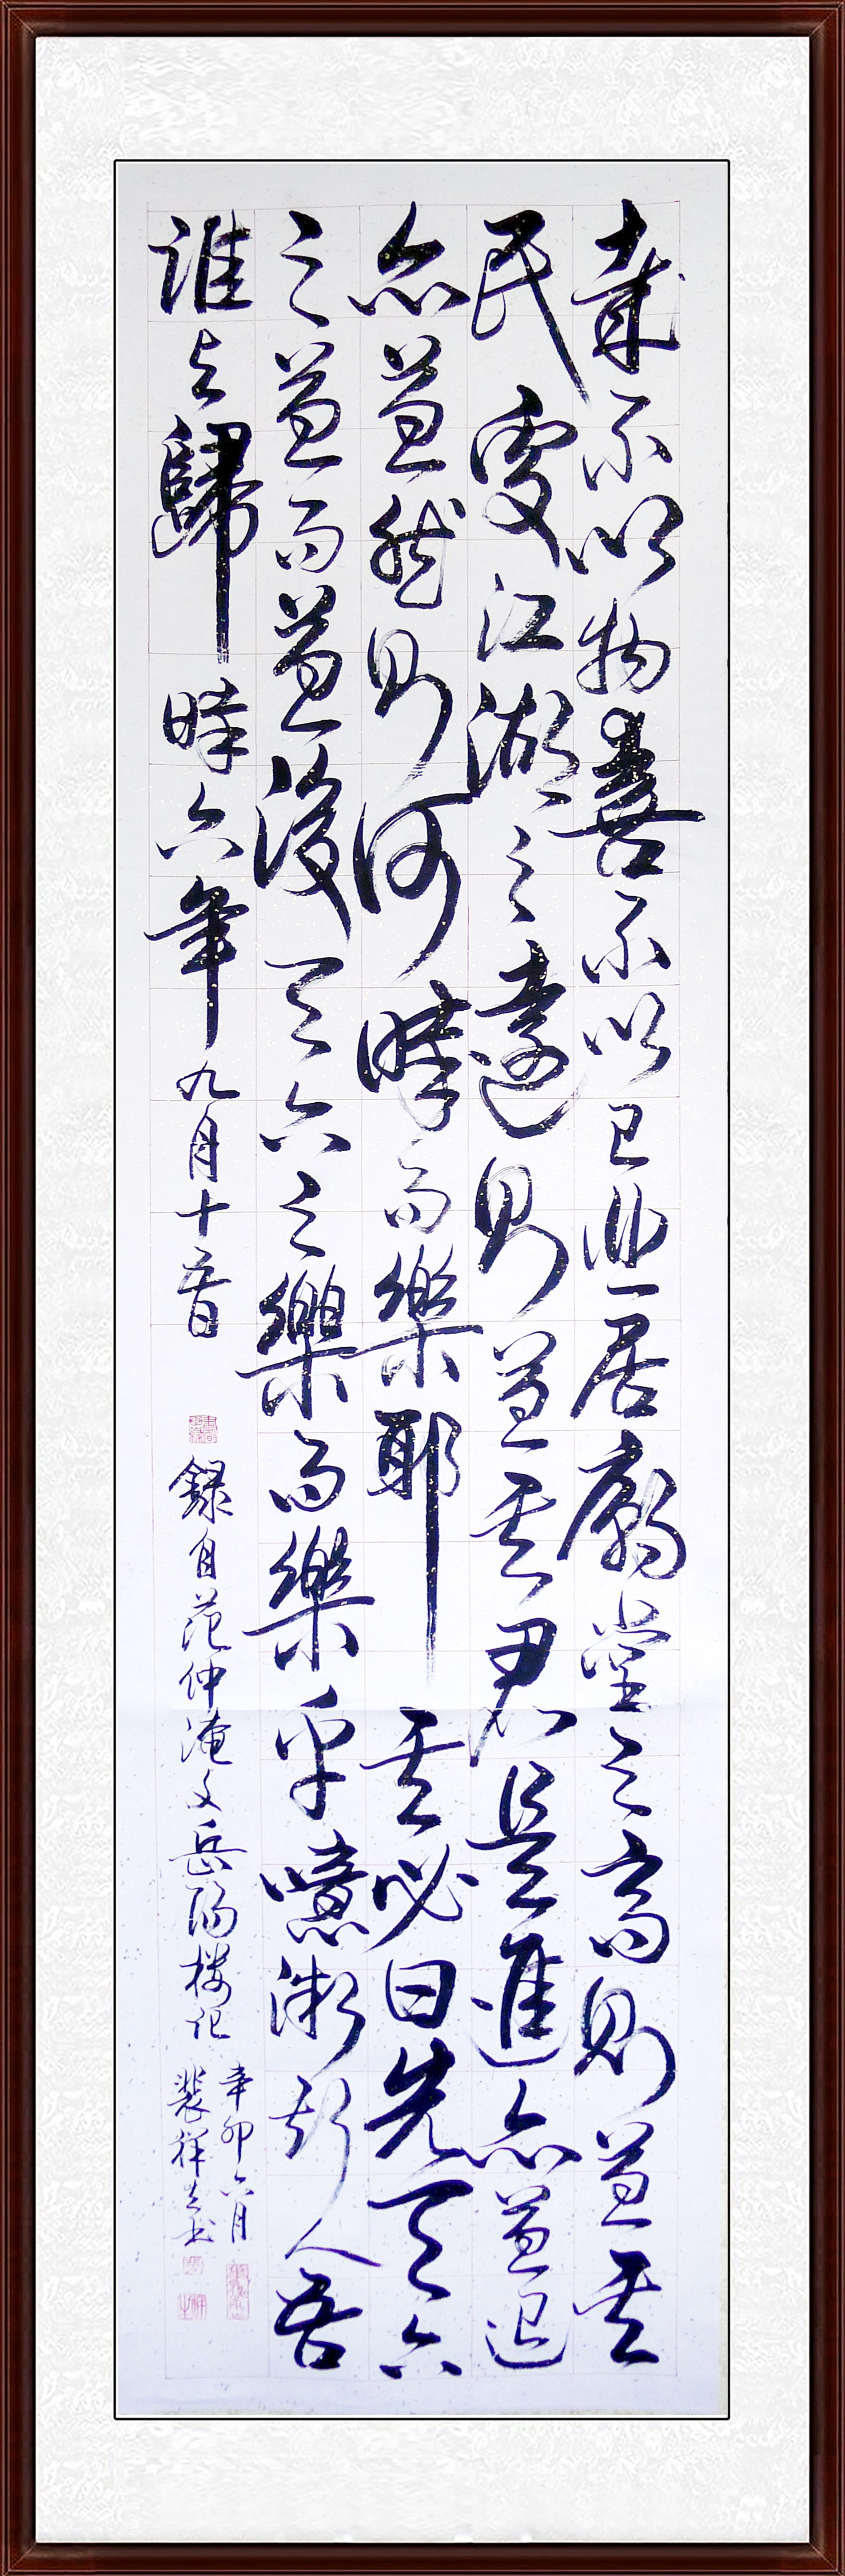 哉不以物喜不以己悲居廟堂之高則憂其
民處江湖之遠則憂其君是進亦憂退
亦憂然則何時而樂耶其必曰先天下
之憂而憂後天下之樂而樂乎噫微斯人吾
誰與歸時六年九月十五日
錄自范仲淹文岳陽楼记
辛卯六月
裴祥书